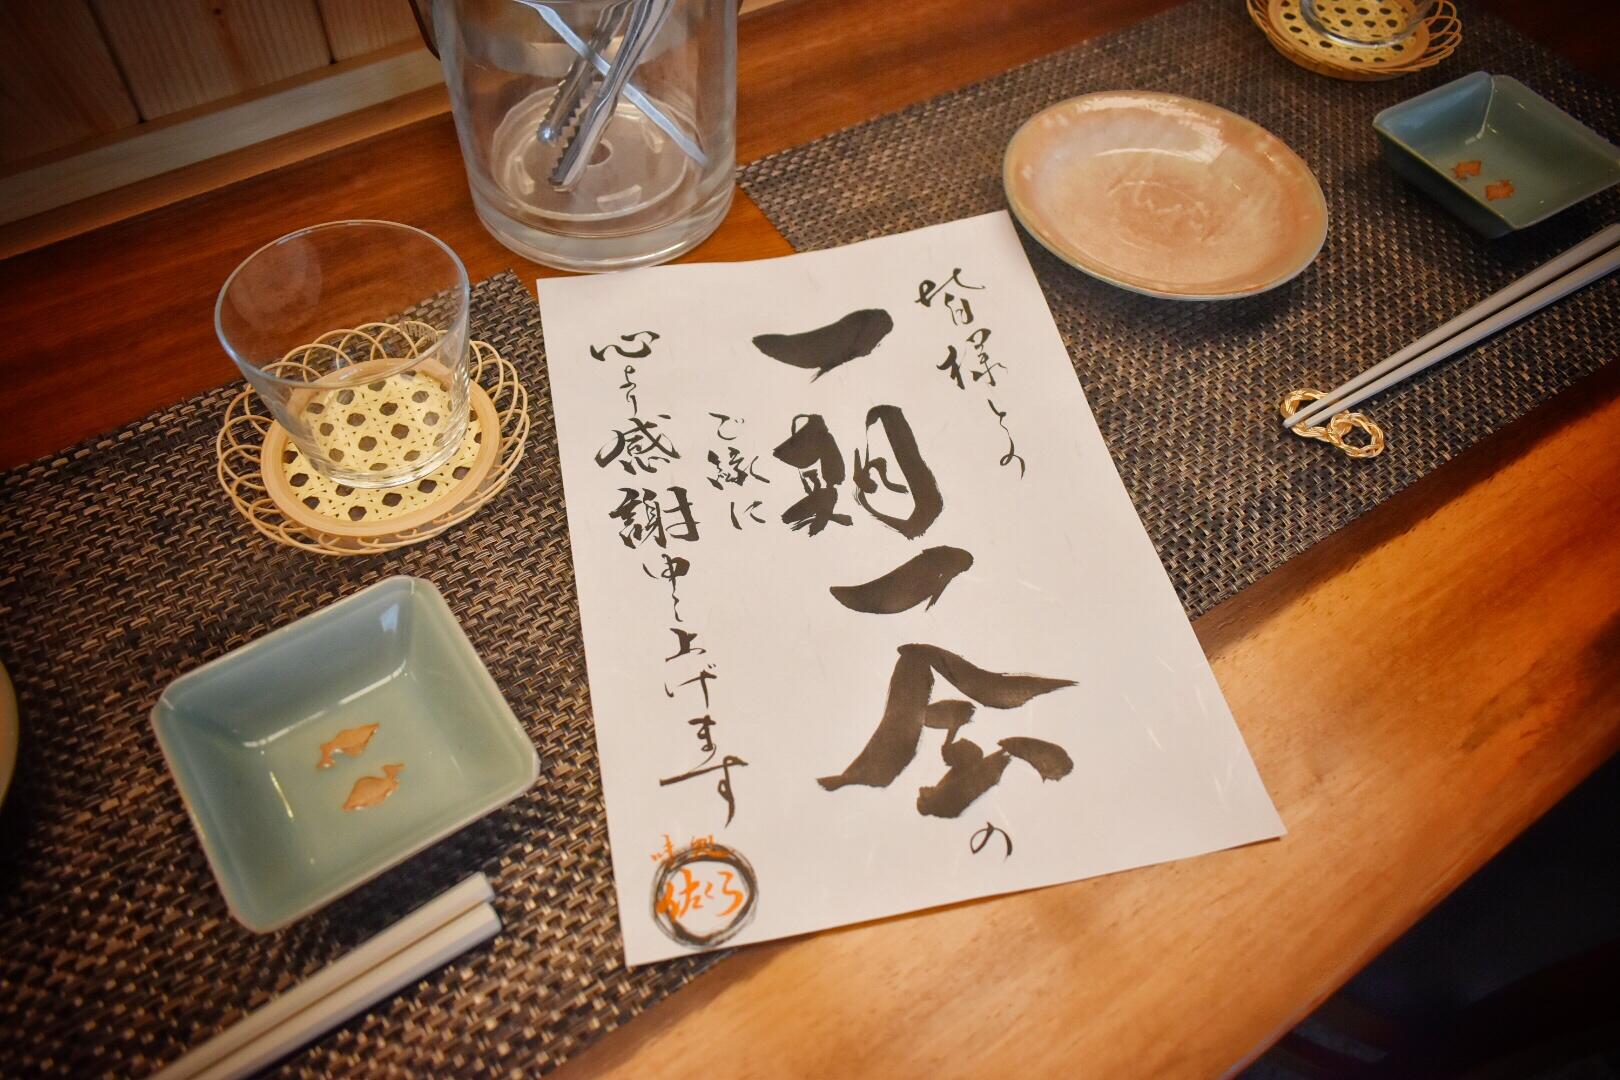 皆様との
一期一会の
ご縁に
心より感謝申し上げます
味処
佐くろ